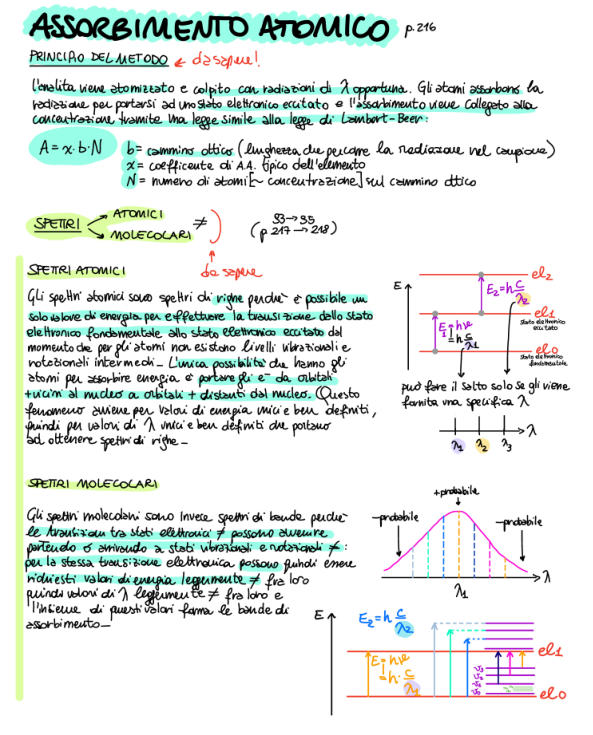 ASSORBIMENTO ATOMICO p.216
PRINCIPIO DEL METODO ← da sapere!
L'analita viene atomizzato e colpito con radiazioni di λ opportuna. Gli atomi assorbono la
radiazione per portarsi ad uno stato elettronico eccitato e l'assorbimento viene collegato alla
concentrazione tramite una legge simile alla legge di Lambert-Beer:
A = x·b·N
b = cammino ottico (lunghezza che percorre la radiazione nel campione)
x = coefficiente di A.A. tipico dell'elemento
N = numero di atomi [~ concentrazione] sul cammino ottico
SPETTRI
ATOMICI
MOLECOLARI
≠
93→95
(p 217→218)
da sapere
SPETTRI ATOMICI
Gli spettri atomici sono spettri di righe perché è possibile un
solo valore di energia per effettuare la transizione dallo stato
elettronico fondamentale allo stato elettronico eccitato dal
momento che per gli atomi non esistono livelli vibrazionali e
rotazionali intermedi_ L'unica possibilità che hanno gli
atomi per assorbire energia è portare gli e⁻ da orbitali
+vicini al nucleo a orbitali + distanti dal nucleo. Questo
fenomeno avviene per valori di energia unici e ben definiti,
quindi per valori di λ unici e ben definiti che portano
ad ottenere spettri di righe_
E
el2
E2=h c/λ2
el1
stato elettronico
eccitato
E1=hν
=h c/λ1
el0
stato elettronico
fondamentale
può fare il salto solo se gli viene
fornita una specifica λ
λ
λ1 λ2 λ3
SPETTRI MOLECOLARI
Gli spettri molecolari sono invece spettri di bande perché
le transizioni tra stati elettronici ≠ possono avvenire
partendo o arrivando a stati vibrazionali e rotazionali ≠:
per la stessa transizione elettronica possono quindi essere
richiesti valori di energia leggermente ≠ fra loro
quindi valori di λ leggermente ≠ fra loro e
l'insieme di questi valori forma le bande di
assorbimento_
+probabile
-probabile
-probabile
λ
λ1
E
E2=h c/λ2
el1
E1=hν
=h·c/λ1
ν3
ν2
ν1
ν0
el0